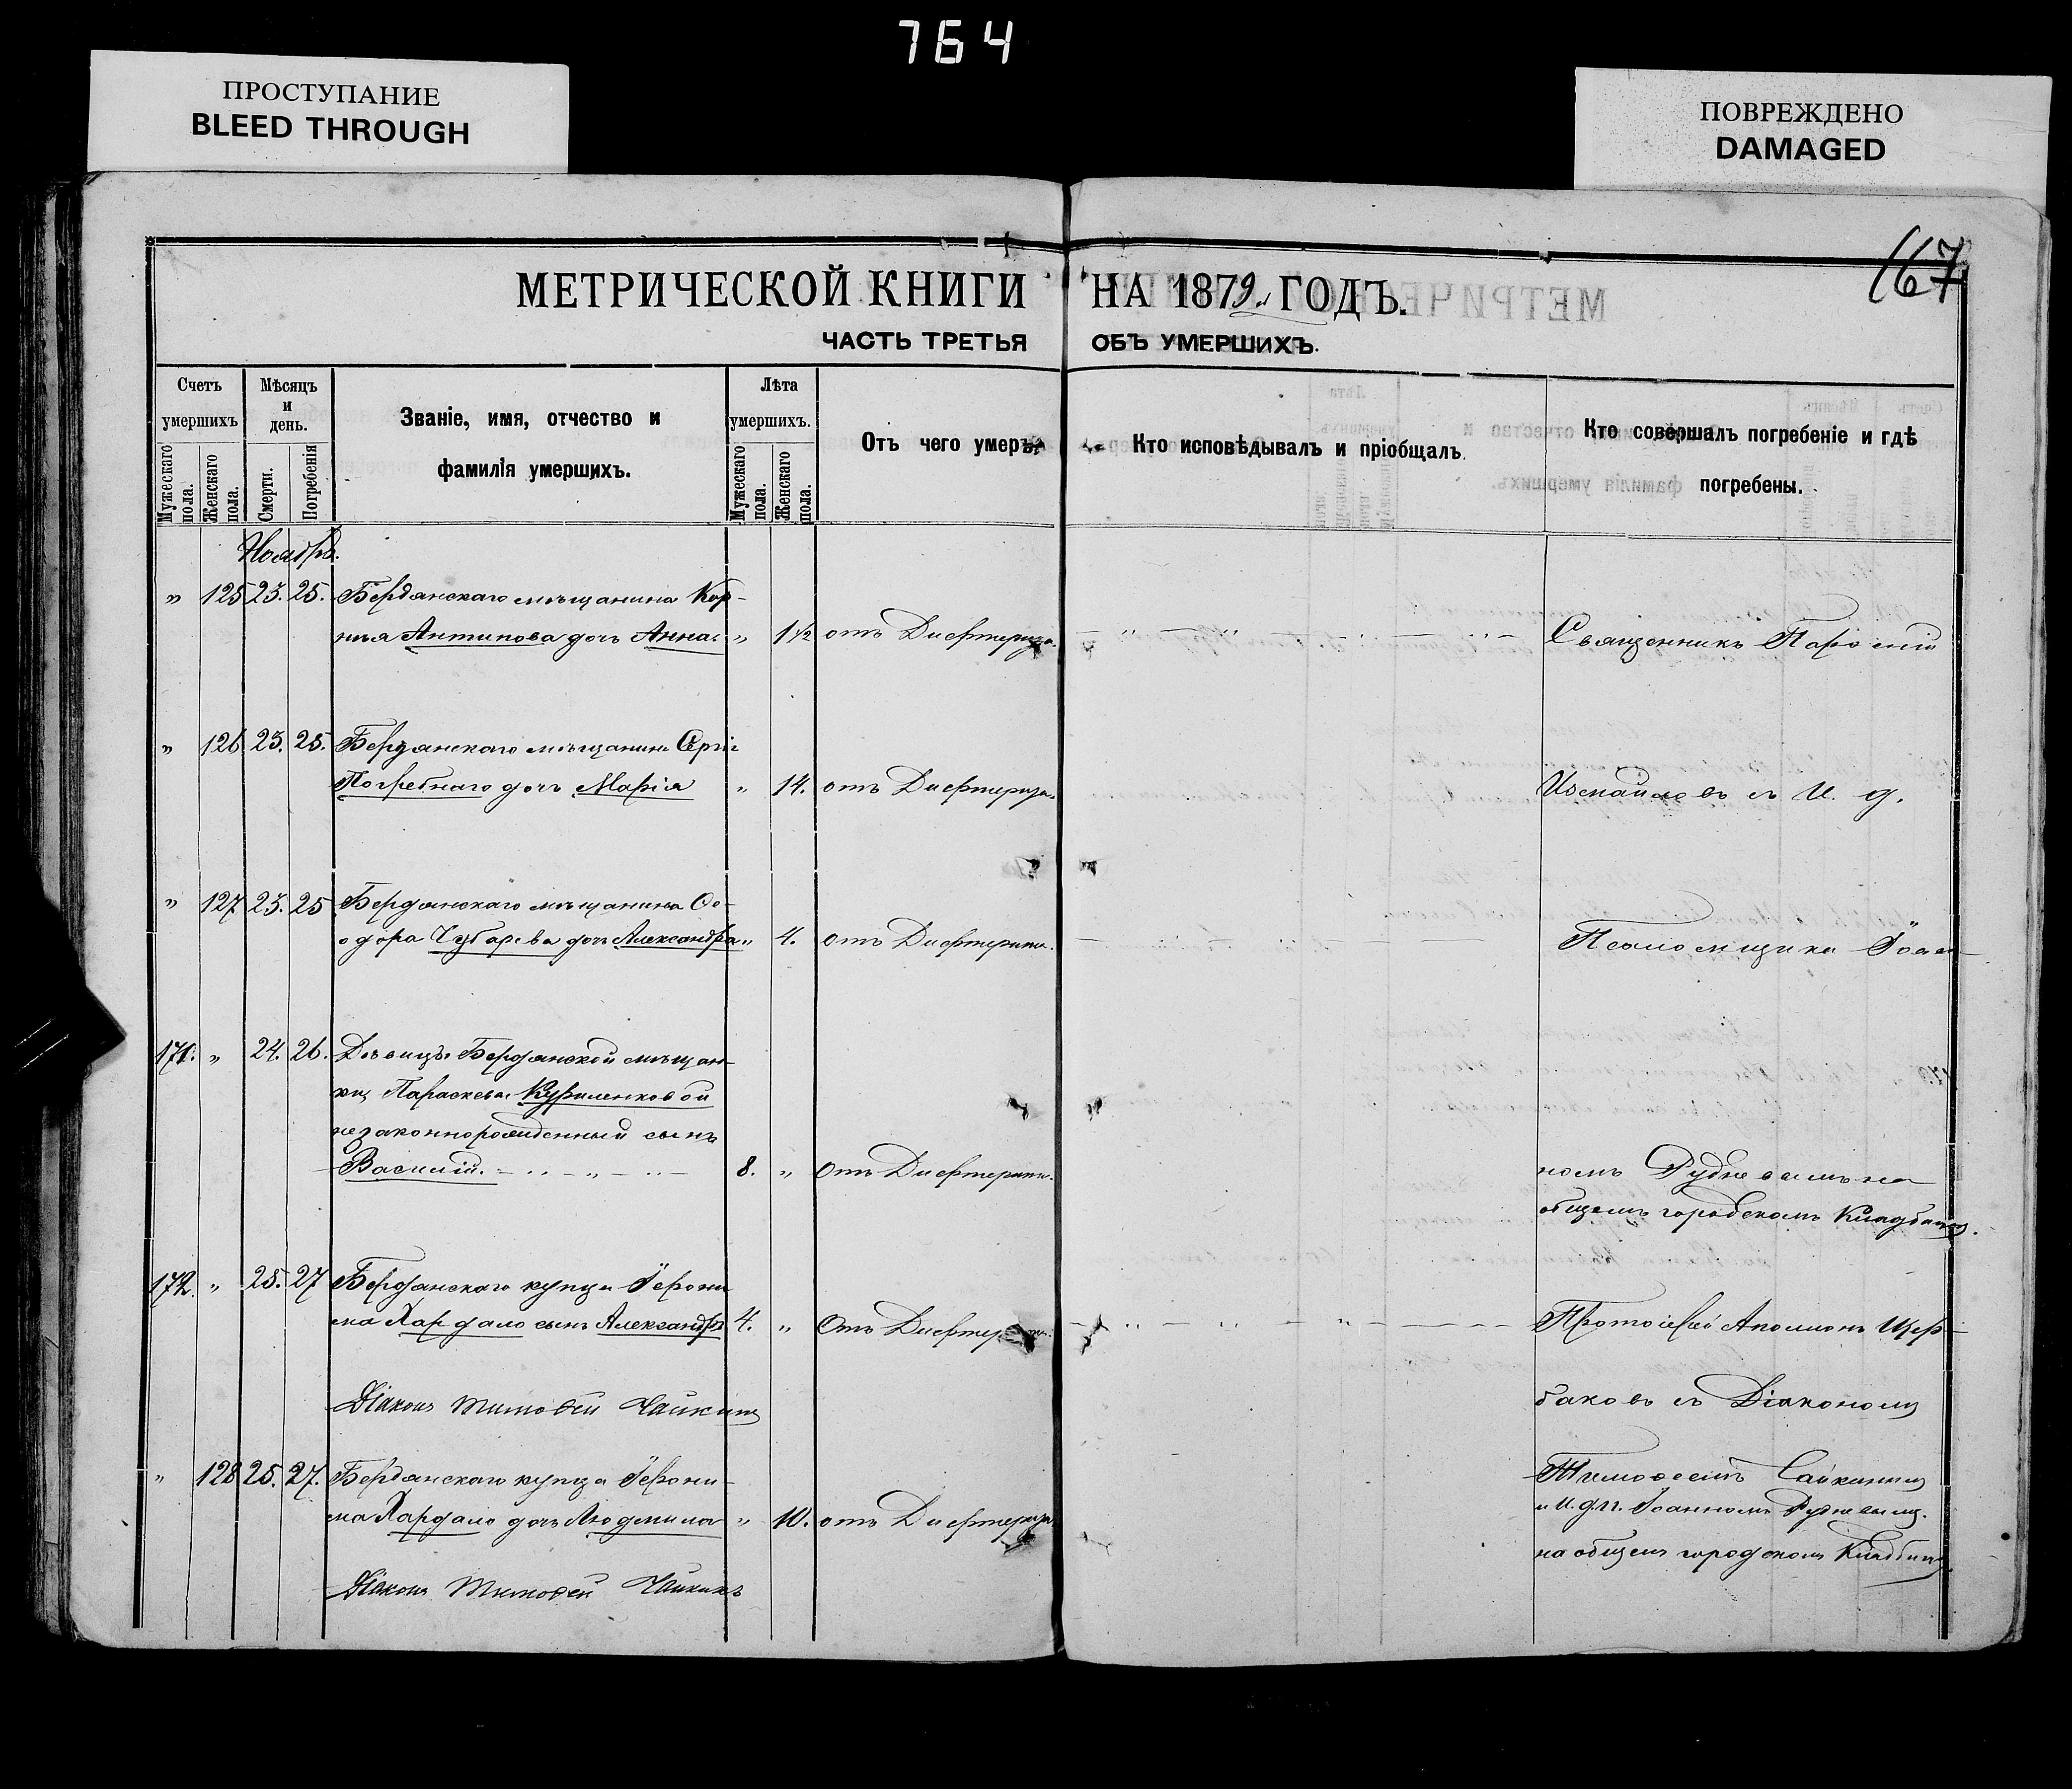 764
ПРОСТУПАНИЕ
BLEED THROUGH
ПОВРЕЖДЕНО
DAMAGED
167
МЕТРИЧЕСКОЙ КНИГИ НА 1879 ГОДЪ.
ЧАСТЬ ТРЕТЬЯ ОБЪ УМЕРШИХЪ.
Счетъ умершихъ
Мужескаго пола.
Женскаго пола.
Мѣсяцъ и день.
Смерти.
Погребенія
Званіе, имя, отчество и
фамилія умершихъ.
Лѣта умершихъ.
Мужескаго пола.
Женскаго пола.
Отъ чего умеръ.
Кто исповѣдывалъ и пріобщалъ.
Кто совершалъ погребеніе и гдѣ
погребены.
Ноябрь.
" 125 23. 25. Бердянскаго мѣщанина Кор-
нѣя Антипова дочь Анна " 1 1/2 отъ Дифтерита Священникъ
" 126 23. 25. Бердянскаго мѣщанина Сергія
Погребнаго дочь Марія " 14. отъ Дифтерита Измаиловъ съ И. д.
" 127 23. 25 Бердянскаго мѣщанина Ѳе-
одора Чубарева дочь Александра " 4. отъ Дифтерита. Псаломщика Іоан-
171. " 24. 26. Дѣвицы Бердянской мѣщан-
ки Параскевы Куриленковой
незаконнорожденный сынъ
Василій. 8. " Отъ Дифтерита. номъ Рудневымъ на
общемъ городскомъ Кладбищѣ.
172. " 25. 27 Бердянскаго купца Іерони
ма Хардало сынъ Александръ 4. " Отъ Дифтерита. Протоіерей Аполлонъ Щер-
Діаконъ Тимофей Чайкинъ
баковъ съ Діакономъ
" 128 25. 27. Бердянскаго купца Іерони-
ма Хардало дочь Людмила " 10. отъ Дифтерита
Тимофеемъ Чайкинымъ
и И.д.п. Іоанномъ Рудневымъ.
на общемъ городскомъ Кладбищѣ
Діаконъ Тимофей Чайкинъ